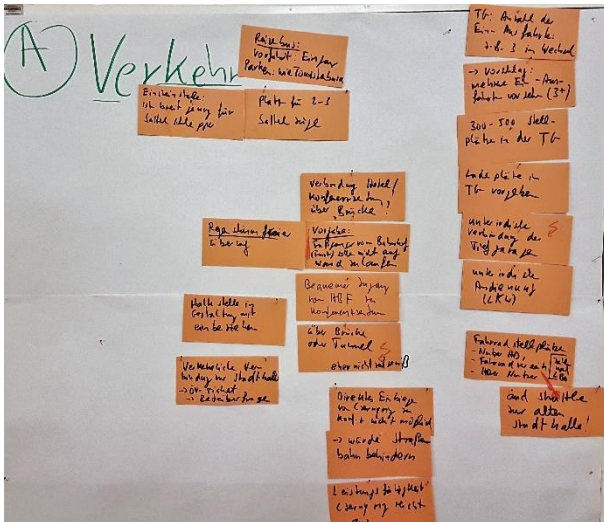 A
Verkehr
Reisebus:
Vorfahrt: Einfahr
Parken: wie
Einfahrtstelle:
ist breit genug für
Sattelschlepper
Platz für 2-3
Sattelzüge
Verbindung Hotel/
Konferenzzentrum,
über Brücke!
überlegen
Vorgabe:
Fußgänger vom Bahnhof
sollte nicht auf
Wand zulaufen
Bequemer Zugang
vom HBF zu
Konferenzzentrum
über Brücke
oder Tunnel
eher nicht
Haltestelle in
Gestaltung mit
einbeziehen
Verkehrliche Ver-
bindung zur Stadthalle
→ ÖPV Ticket
Direktes Einbiegen
von
nicht möglich
→ würde Straßen
bahn behindern
Leistungsfähigkeit
nicht
TG: Anzahl der
Ein- Ausfahrten:
z.B. 3 im Wechsel
→ Vorschlag:
mehrere Ein-Aus-
fahrten vorsehen (3+)
300-500 Stell-
plätze in der TG
Ladeplätze in
TG vorgeben
unterirdische
Verbindung der
Tiefgaragen
unterirdische
Andienung
(LKW)
Fahrradstellplätze
- Nutzer HD,
- Fahrradverleih
- Nutzer
und Shuttle
zur alten
Stadthalle!